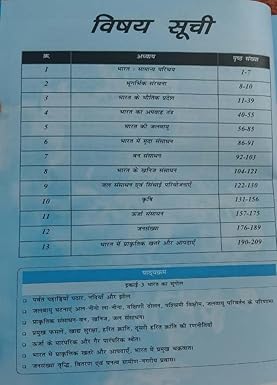 विषय सूची
क्र. अध्याय पृष्ठ संख्या
1 भारत - सामान्य परिचय 1-7
2 भूगर्भिक संरचना 8-10
3 भारत के भौतिक प्रदेश 11-39
4 भारत का अपवाह तंत्र 40-55
5 भारत की जलवायु 56-85
6 भारत में मृदा संसाधन 86-91
7 वन संसाधन 92-103
8 भारत के खनिज संसाधन 104-121
9 जल संसाधन एवं सिंचाई परियोजनाएँ 122-130
10 कृषि 131-156
11 ऊर्जा संसाधन 157-175
12 जनसंख्या 176-189
13 भारत में प्राकृतिक खतरे और आपदाएँ 190-209
पाठ्यक्रम
इकाई-3 भारत का भूगोल
पर्वत पहाड़ियां पठार, नदियाँ और झीलें
जलवायु घटनाएं अल नीनो ला नीना, दक्षिणी दोलन, पश्चिमी विक्षोभ, जलवायु परिवर्तन के परिणाम
प्राकृतिक संसाधन-वन, खनिज, जल संसाधन।
प्रमुख फसलें, खाद्य सुरक्षा, हरित क्रांति, दूसरी हरित क्रांति की रणनीतियाँ
ऊर्जा के पारंपरिक और गैर पारंपरिक स्रोत।
भारत में प्राकृतिक खतरे और आपदाएं, भारत में प्रमुख चक्रवात।
जनसंख्या वृद्धि, वितरण एवं घनत्व ग्रामीण-नगरीय प्रवास।